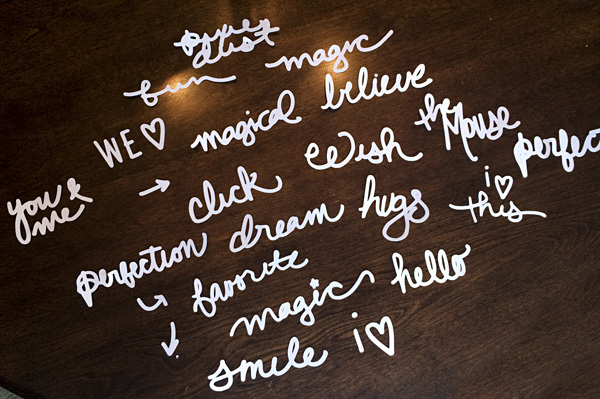 pixie dust
fun magic
WE♡ magical believe
you & me → click Wish the Mouse perfect
perfection dream hugs i♡ this
favorite
magic hello
smile i♡